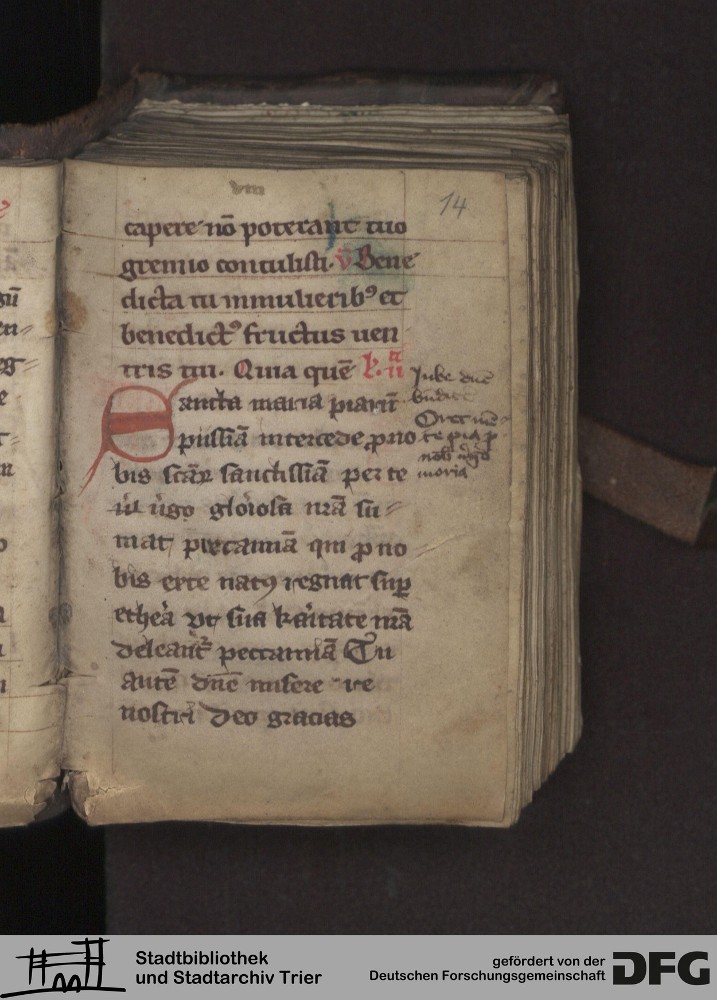 viii
14
capere nō poterant tuo
gremio contulisti. v̄ Bene
dicta tu in mulieribꝰ et
benedictꝰ fructus uen
tris tui. Quia quē l. ii a
Sancta maria piarū
piissiā intercede ꝓ no
bis scāꝝ sanctissiā per te
ut ūgo gloiosa nrā su
mat precamiā qui ꝓ no
bis ex te natꝰ regnat suꝑ
ethea ut sua karitate nrā
deleant᷑ peccamiā Tu
autē dn̄e misere re
nostri Deo gracias
Iube dn̄e
bn̄dice
Oret
te pia ꝓ
nob ūgo
moria
Stadtbibliothek
und Stadtarchiv Trier
gefördert von der
Deutschen Forschungsgemeinschaft
DFG